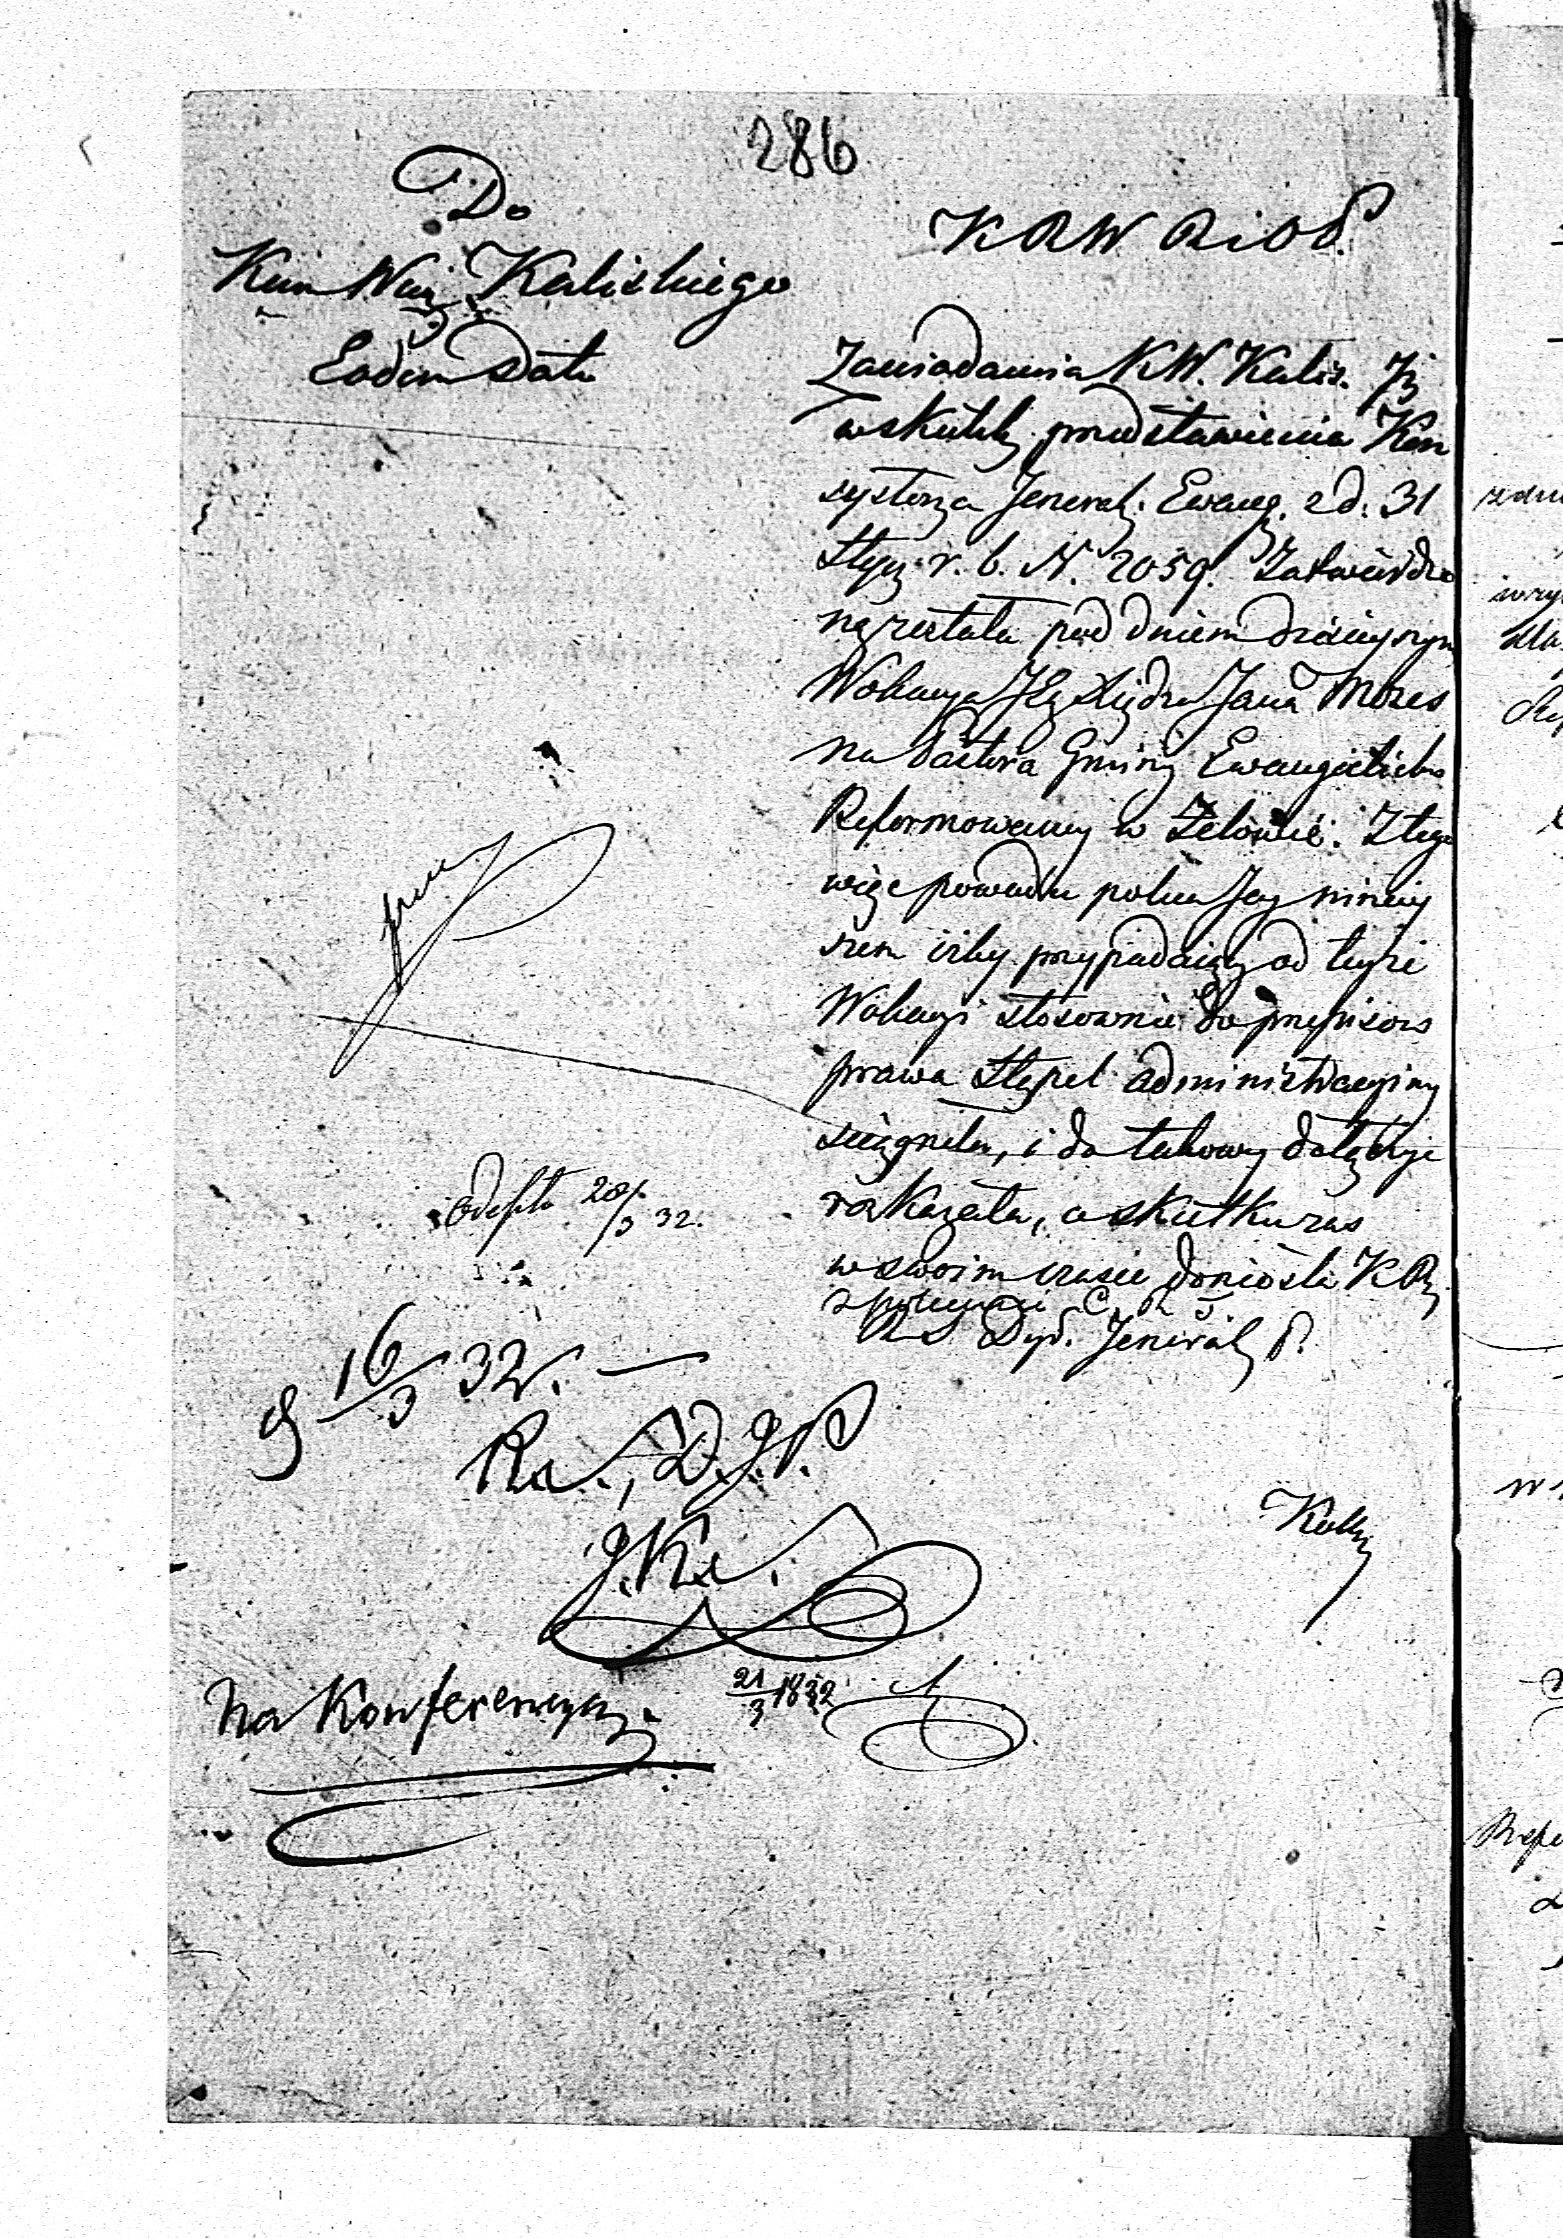 286
Do
Kom Woj. Kaliskiego
Eodem Dato
K R W R i O P.
Zawiadamia K W. Kalis. Jż
w skutek przedstawienia Kon
systorza Jeneral. Ewang. z d. 31
Stycz r. b. N. 2059. Zatwierdzo
ną została pod dniem dzisiejszym
Wokacya JX Księdza Jana Mozes
na Pastora Gminy Ewangielicko
Reformowaney w Zelowie. Z tego
więc powodu poleca Jey niniey
szem iżby przypadaiący od teyże
Wokacyi stosownie do przepisow
prawa Stępel administracyiny
ściągnęła, i do takowy dołączyć
rozkazała, o skutku zas
w swoim czasie doniosła K R.
z polecenia
R S Dyr. Jeneralny P.
Odeszło 28/3 32.
d 16/3 32 r. —
R. S., D. J. P.
J. K.
Na Konferencyą
21/3 1832